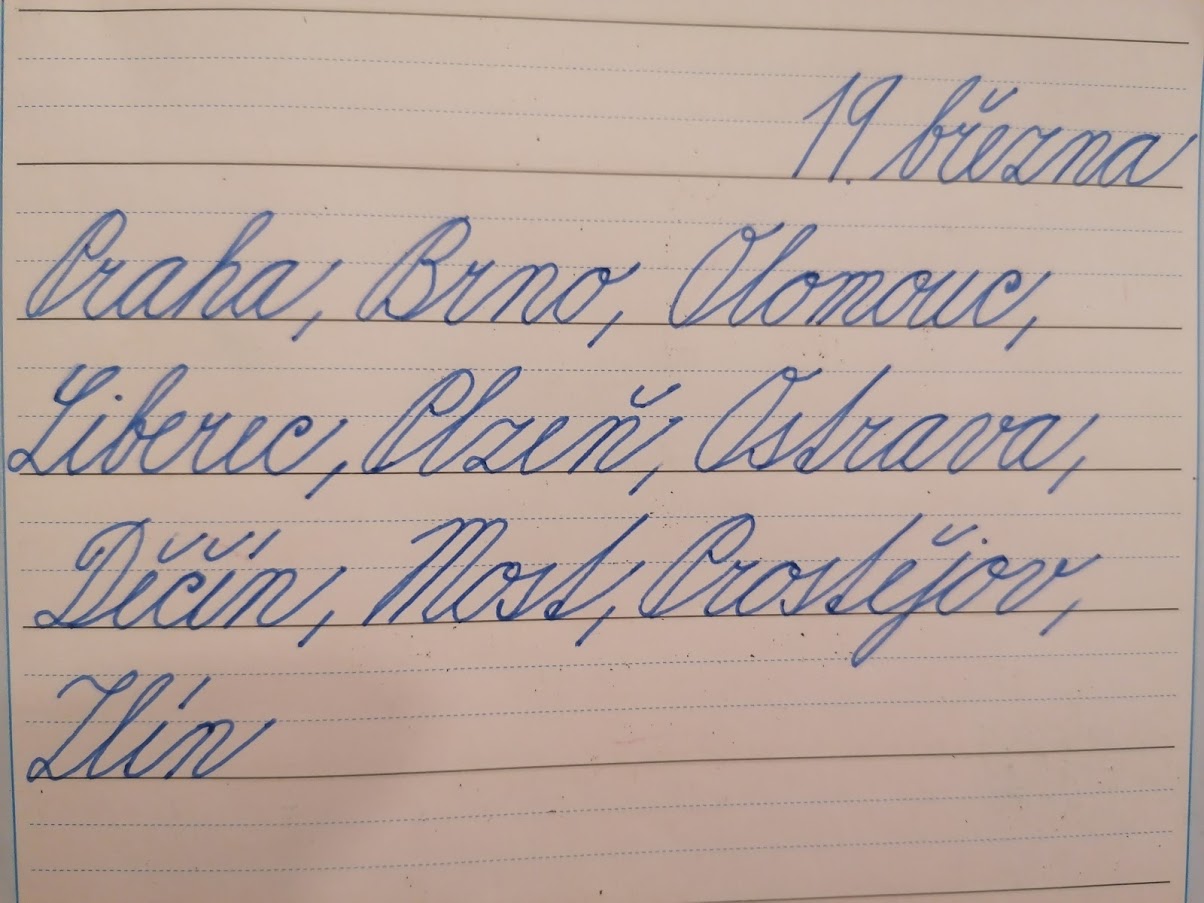 19. března
Praha, Brno, Olomouc,
Liberec, Plzeň, Ostrava,
Děčín, Most, Prostějov,
Zlín